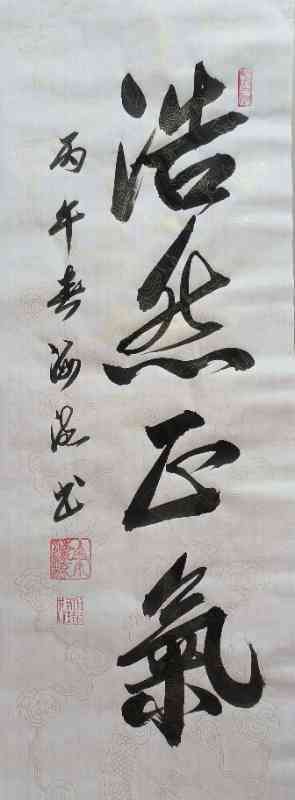 浩然正氣
丙午春海滨书